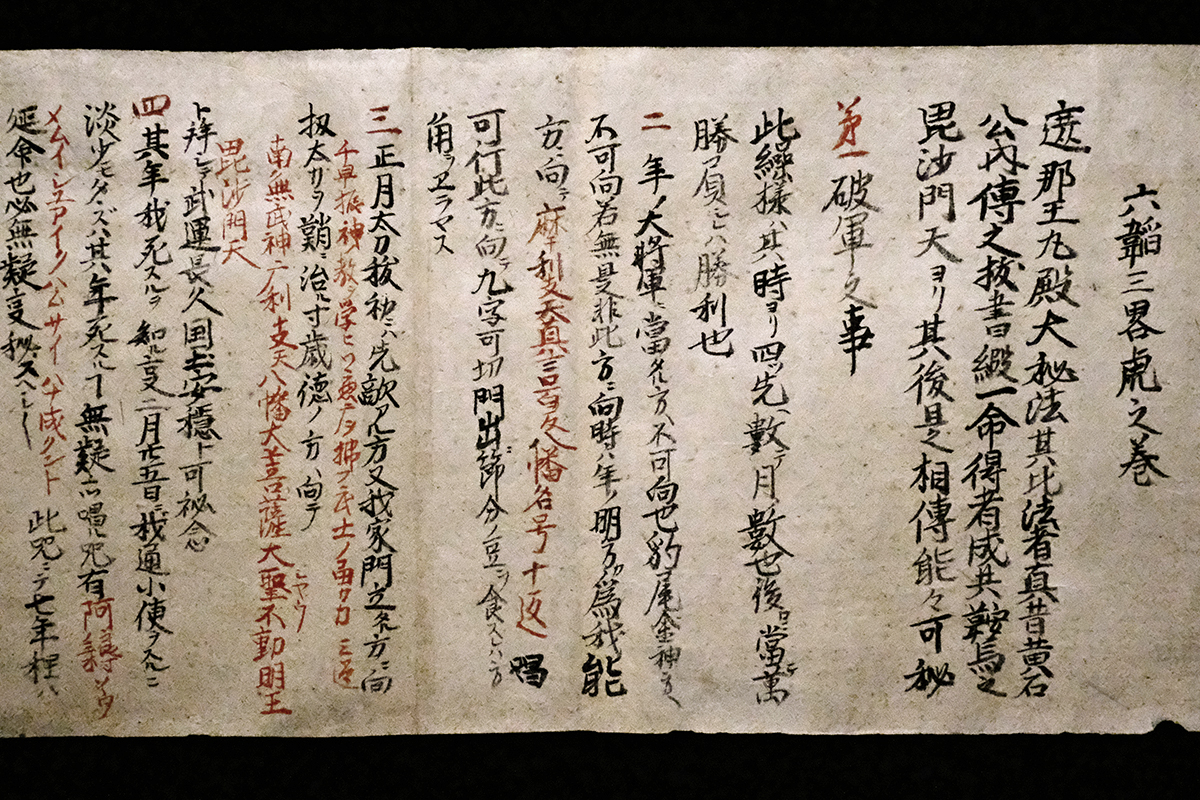 六韜三畧虎之巻
遮那王丸殿大秘法其比法者真昔黄石
公内傳之抜書綴一命得者成共鞍馬之
毘沙門天ヨリ其後是相傳能々可秘
第一破軍之事
此繰様ハ其時ヨリ四ツ先数テ月数也後ヨリ當ニ萬
勝負ニハ勝利也
二 年ノ大将軍ニ當ル方ヘ不可向也豹尾金神方ヘ
不可向若無是非此方ニ向時ハ年ノ明方為我能
方ニ向テ摩利支天真言百久幡名号十返 唱
可行此方ニ向テ九字可切門出節分ノ豆ヲ食スヘハ方
角ヲエラマス
三 正月太刀抜初ニハ先敵ル方又我家門立ル方ニ向
千早振神ノ教ヲ学ヒツ ヲ拂フ武士ノ タカ 三返
扨太刀ヲ鞘ニ治ル寸歳徳ノ方ヘ向テ
南無武神 利支天八幡大菩薩大聖不動明王
毘沙門天
ト拜シテ武運長久国土安穏ト可秘念
四 其年我死スルヲ知ル事二月廿五日ニ我通小使ヲスルニ
淡少モタヽズハ其年死スル丁無疑 唱ル咒有阿
メムイ
延命也必無疑事秘スヘシ 此咒ニテ七年裡ハ